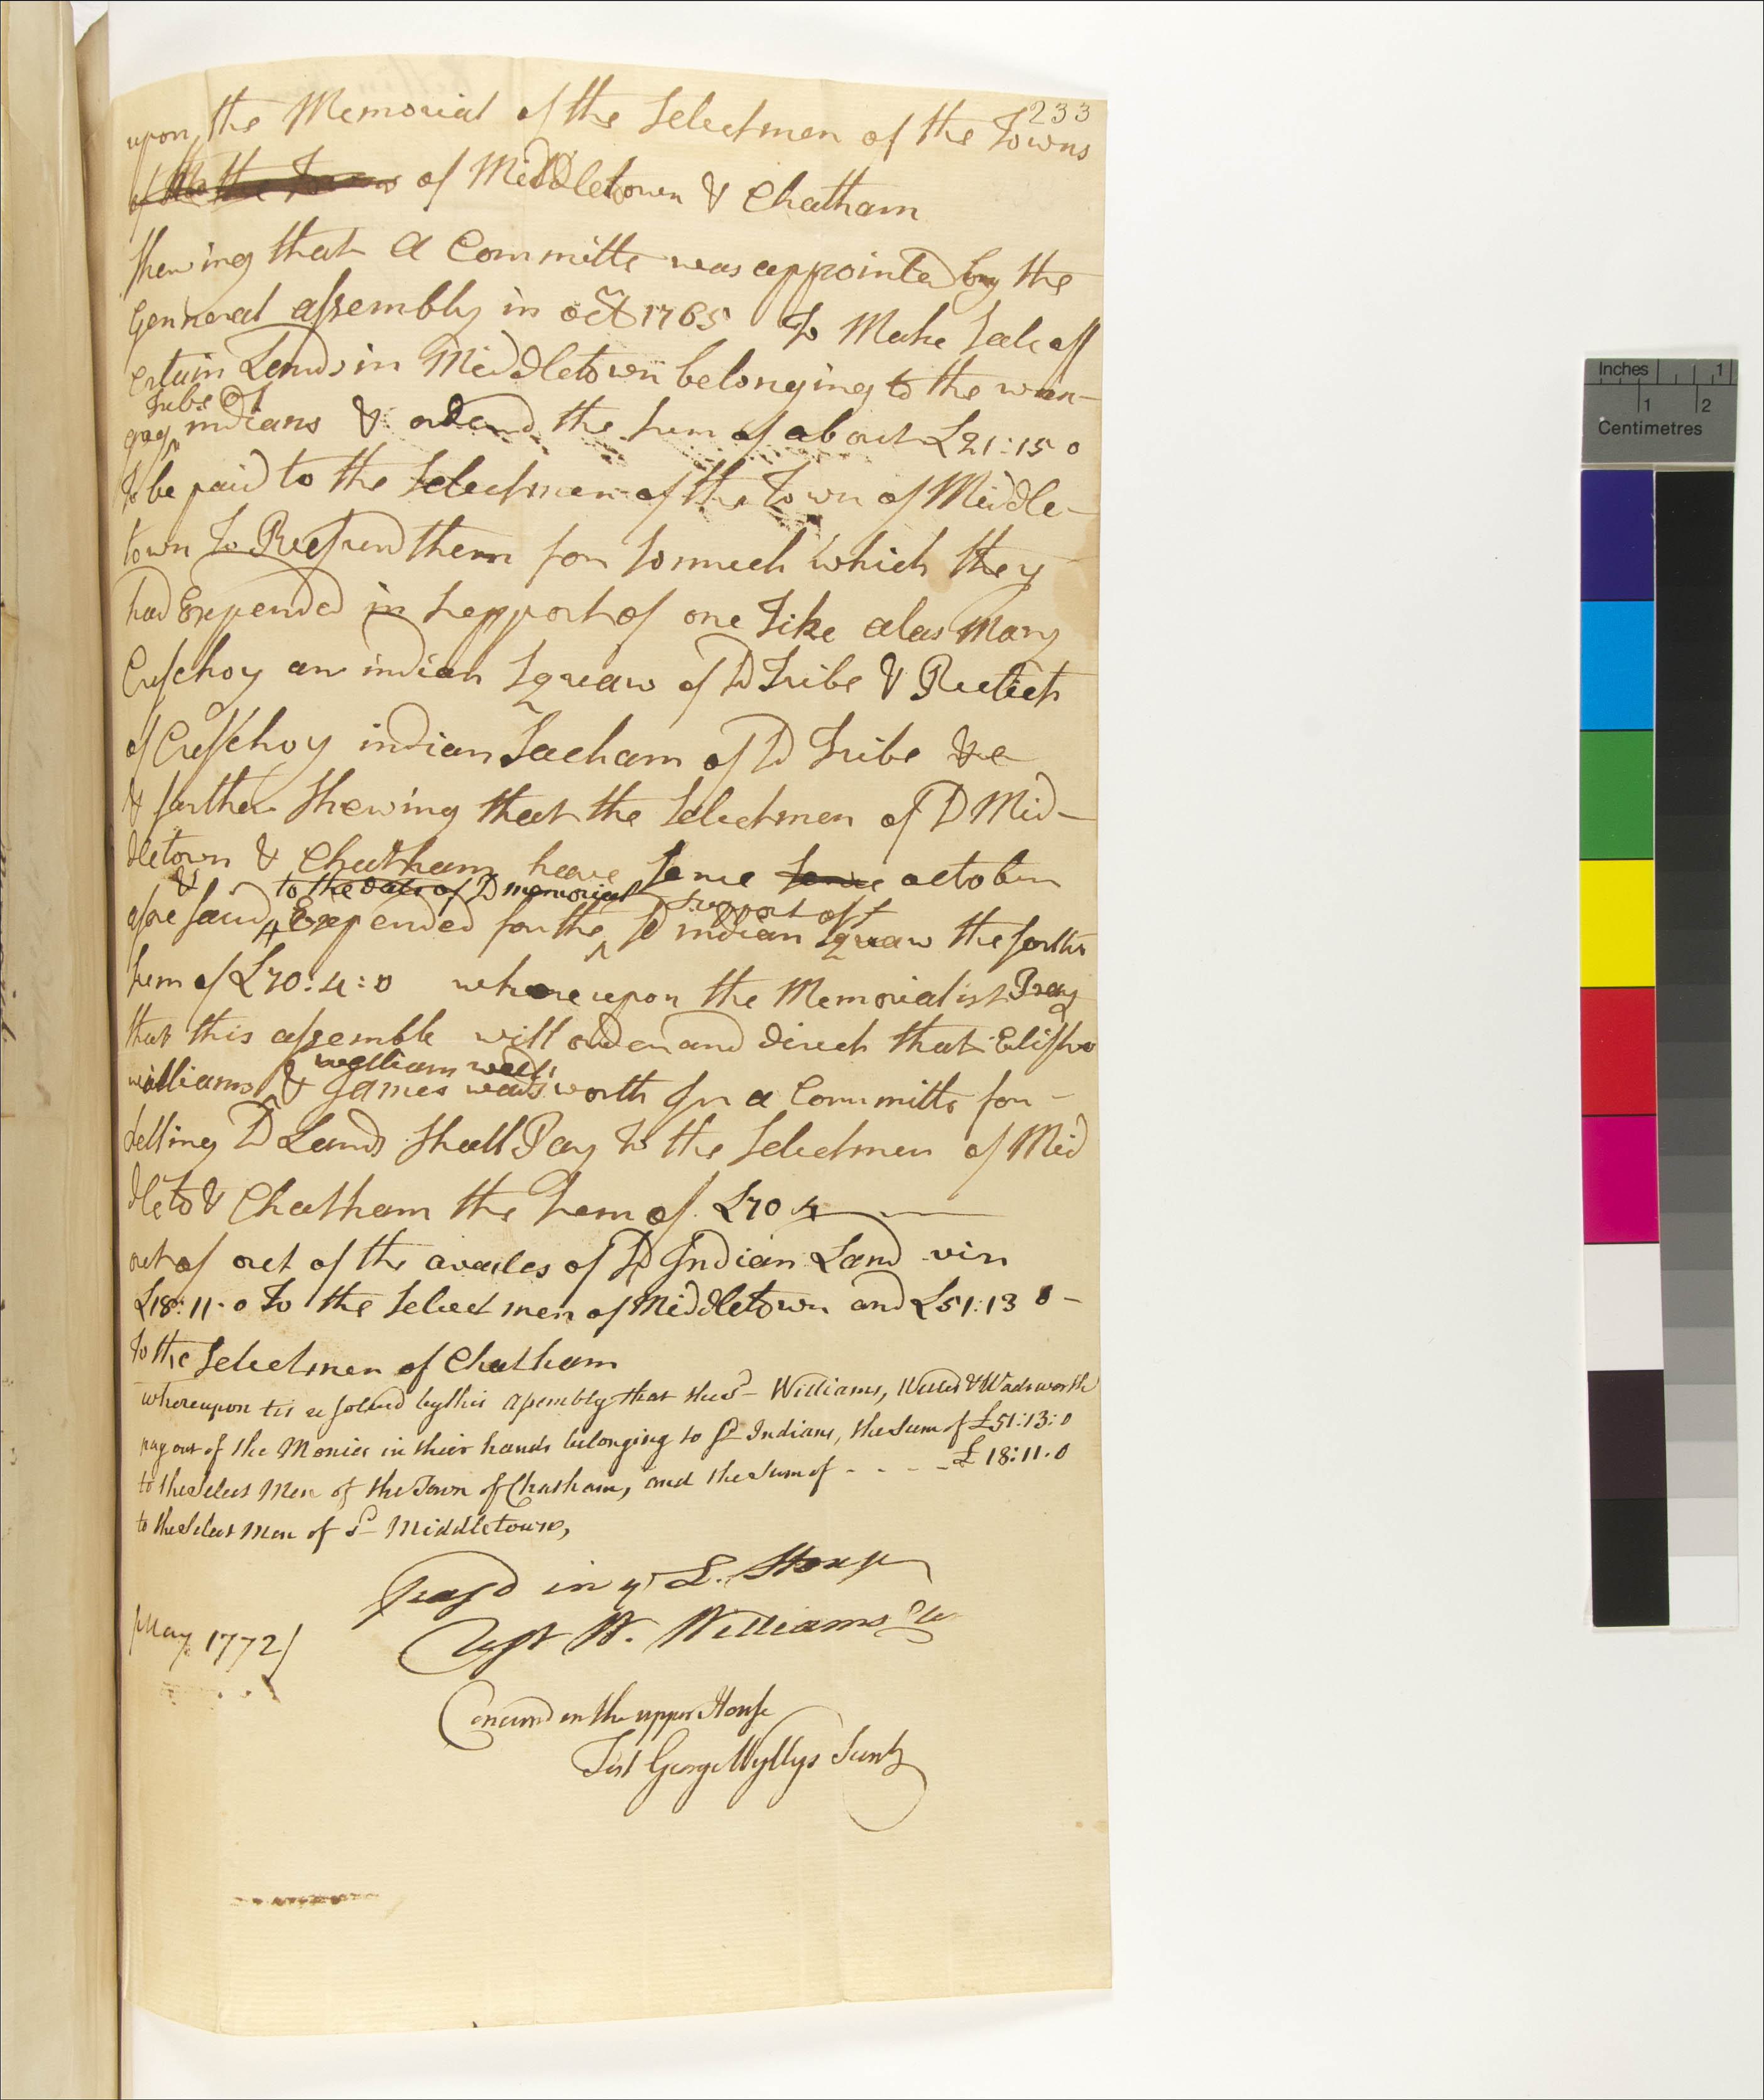 233
upon the Memorial of the Selectmen of the Towns
of Middletown & Chatham
Shewing that a Committe was appointed by the
Genneral assembly in oct 1765 To Make Sale off
Certain Lands in Middletown belonging to the wan-
Tribe of
gog indians & orderd the Sum of about £21:15 0
To be paid to the Selectmen of the Town of Middle-
town To Reefund them for Somuch which they
had Expended in Sepport of one Tike alas Mary
Cuschoy an indian Squaw of Sd Tribe & Relict
of Cuschoy indian Sacham of Sd Tribe &c
& further Shewing that the Selectmen of Sd Mid-
dletown & Chatham have Sence Sence october
& to the date of Sd memorial support off
afore said Expended for the Sd indian Squaw the further
Sum of £70:4:0 whereupon the Memorialist Pray
that this assemble will order and direct that Elisha
william wells
williams & James wadsworth Jnr a Committe for
Selling Sd Lands Shall Pay To the Selectmen of Mid
dleto & Chatham the Sum of £70 4
out of out of the availes of Sd Indian Land viz
£18:11:0 To the Select men of Middletown and £51:13 0 -
To the Selectmen of Chatham
whereupon tis resolved by this Assembly that the sd Williams, Wells & Wadsworth
pay out of the Monies in their hands belonging to sd Indians, the Sum of £51:13:0
to the Select Men of the Town of Chatham, and the Sum of - - - - £18:11.0
to the Select Men of sd Middletown,
Pass'd in ye L. House
May 1772/
Test W. Williams Clr
Concurd in the upper House
Test George Wyllys Secrety
Inches 1
1 2
Centimetres